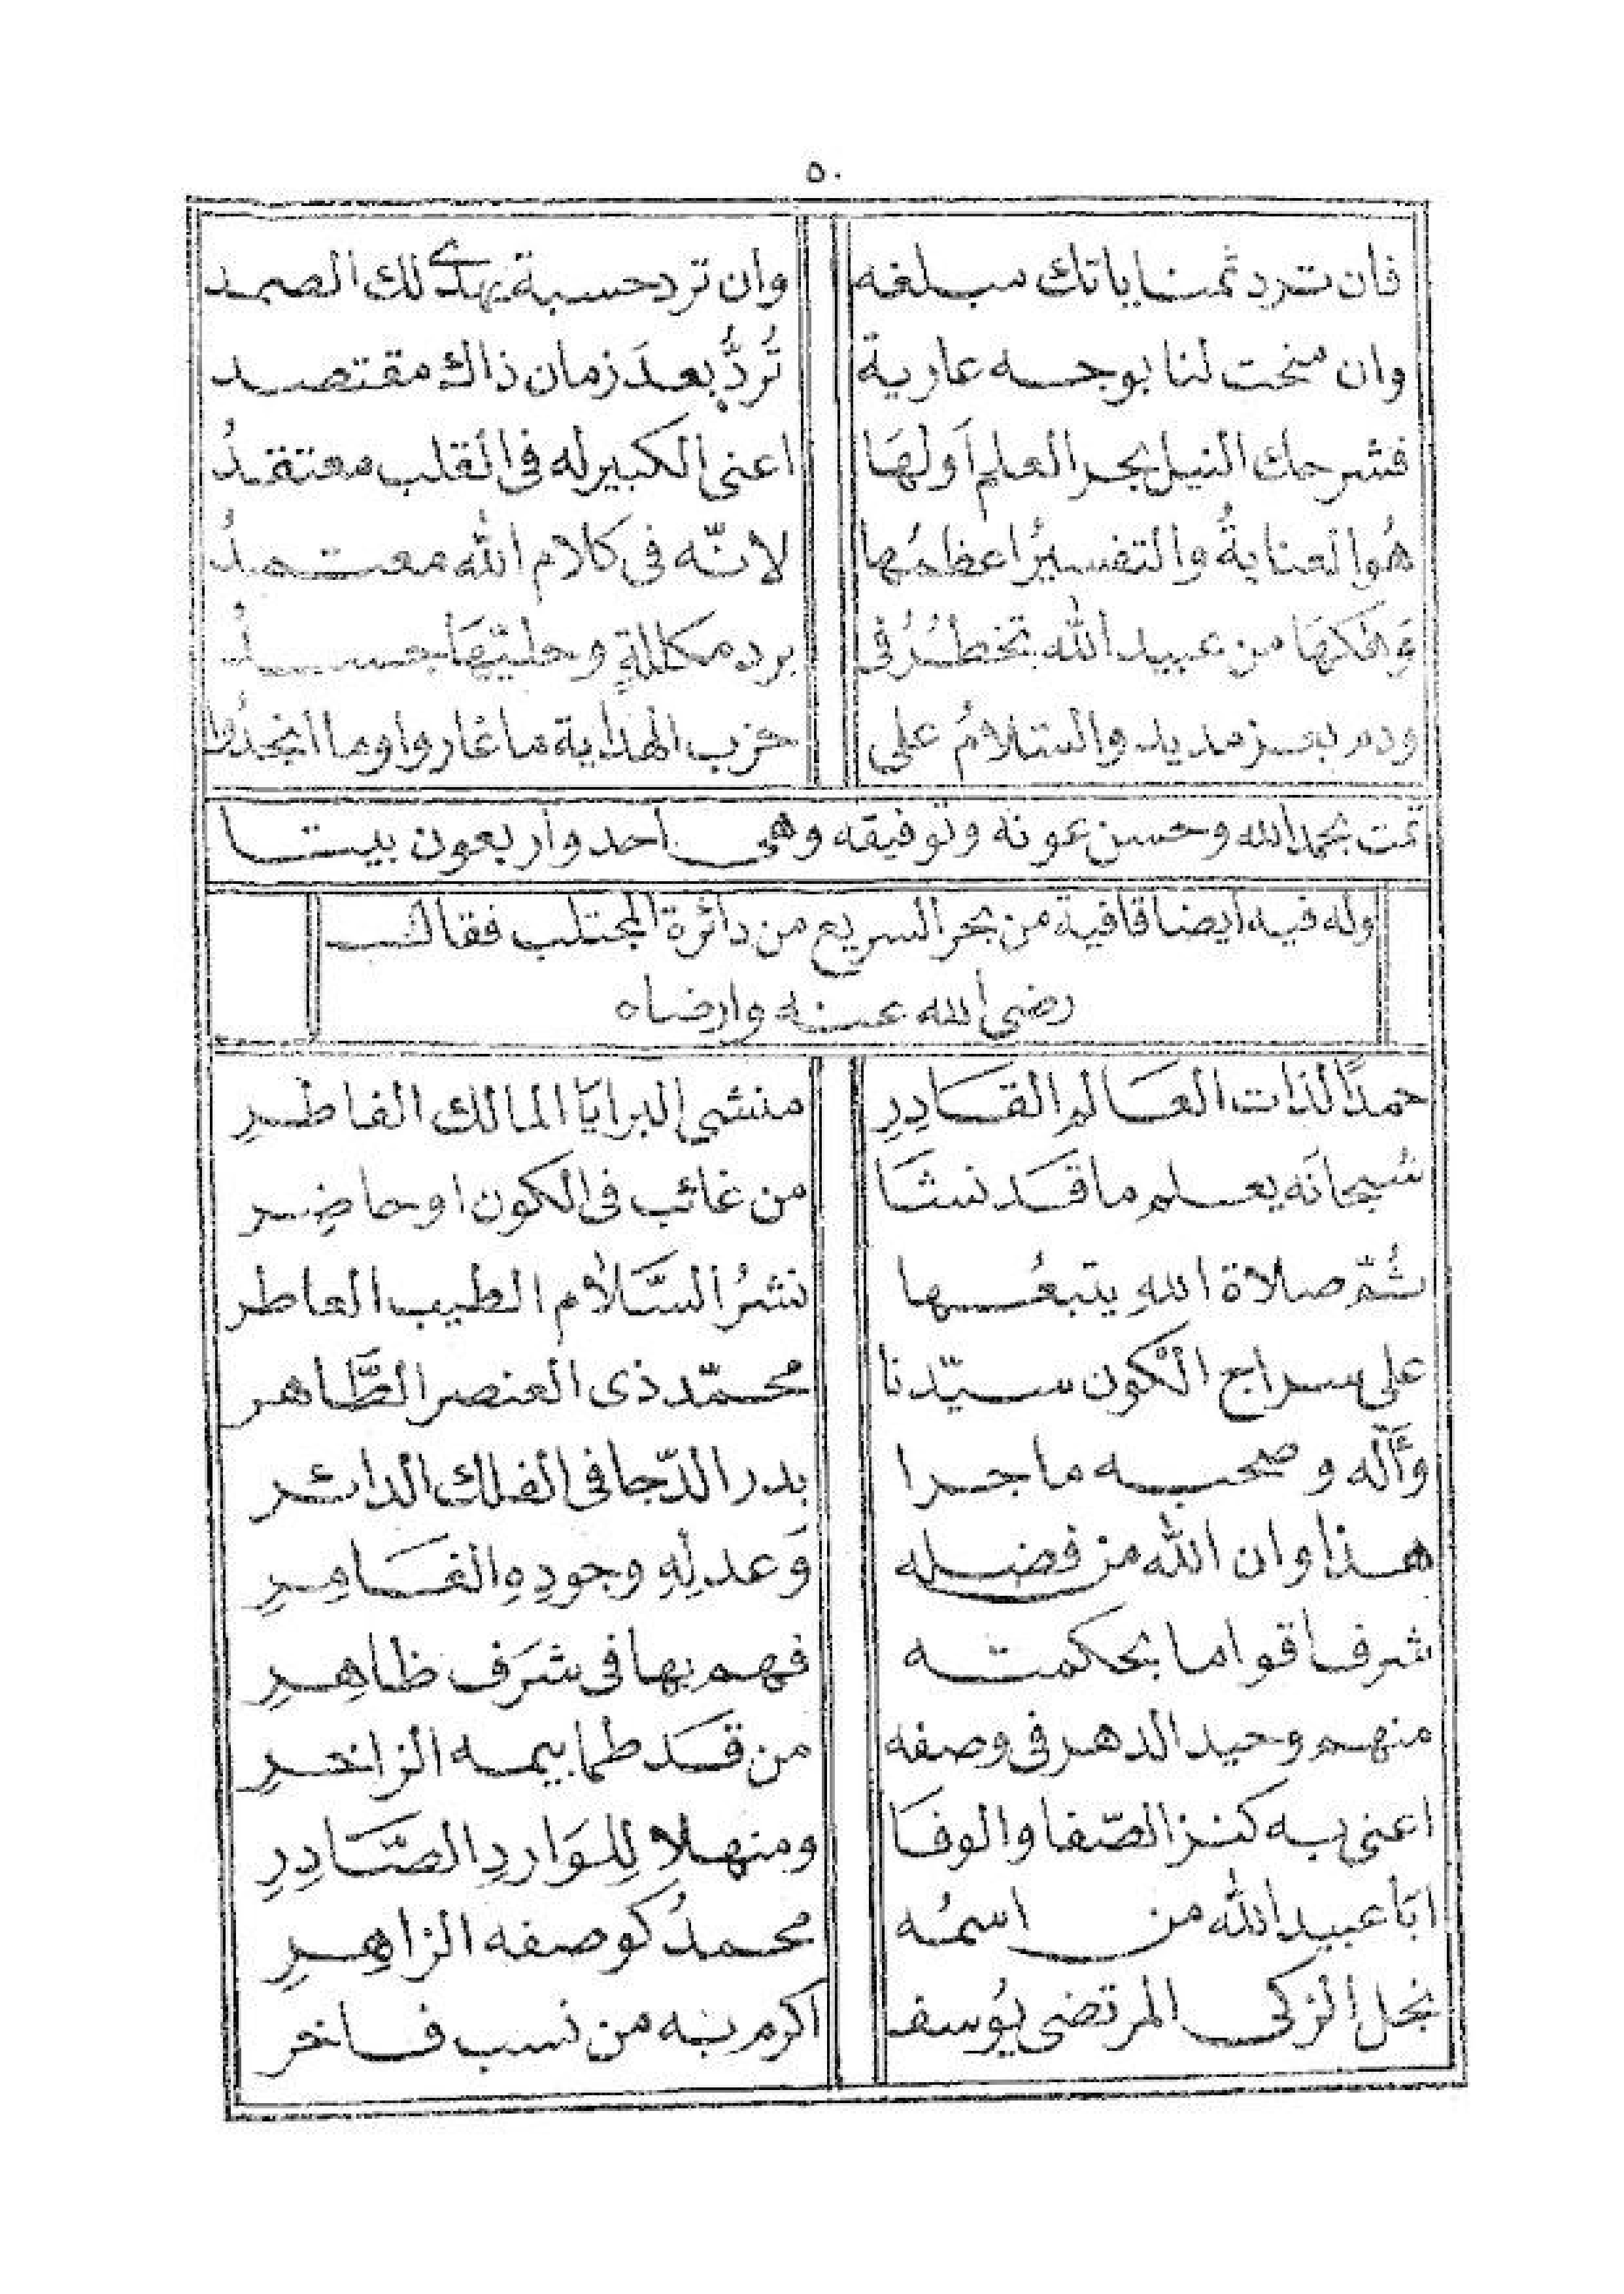 ٥٠
فان ترد ثمنا ياتك مبلغه وان ترد حسبة يهدى لك الصمد
وان منحت لنا بوجه عارية تُردُّ بعدَ زمان ذاك مقتصد
فشرحك النيل بحر العلم اَولهَا اعنى الكبير له فى القلب معتقدُ
هُو العنايةُ والتفسيرُ اعظمُها لانّه فى كلام الله معتمدُ
من عبيد الله تخطُرُ فى برد مكللةٍ وحليّهَا
ودم مديد والسّلامُ على حزب الهداية ما غاروا وما انجدُوا
تمت بحمد الله وحسن عونه وتوفيقه وهى احد واربعون بيتا
وله فيه ايضا قافية من بحر السريع من دائرة المجتلب فقال
رضى الله عنه وارضاه
حمدًا لذات العَالم القَادِرِ منشى البرايَا المالك الفاطرِ
سُبحانَه يعلم ما قَد نشَا من غائب فى الكون او حاضِر
ثُمّ صلاة اللهِ يتبعُها نشرُ السَّلام الطيب العاطر
على سراج الْكون سيّدنا محمّد ذى العنصر الطَّاهر
وآله وصحبه ما جرا بدر الدّجا فى الفلك الدائر
هذا وان الله من فضله وَعدلِهِ وجودِهِ الغَامِرِ
شرف اقواما بحكمته فهم بها فى شرَف ظاهِرِ
منهم وحيد الدهر فى وصفه من قَد طما بيمه الزاخرِ
اعنى به كنز الصّفا والوفَا ومنهلا لِلوَاردِ الصَّادِرِ
ابَا عبيد الله من اسمُه محمدُ كوصفه الزاهِرِ
نجل الزكى المرتضى يُوسف اكرم به من نسب فاخر